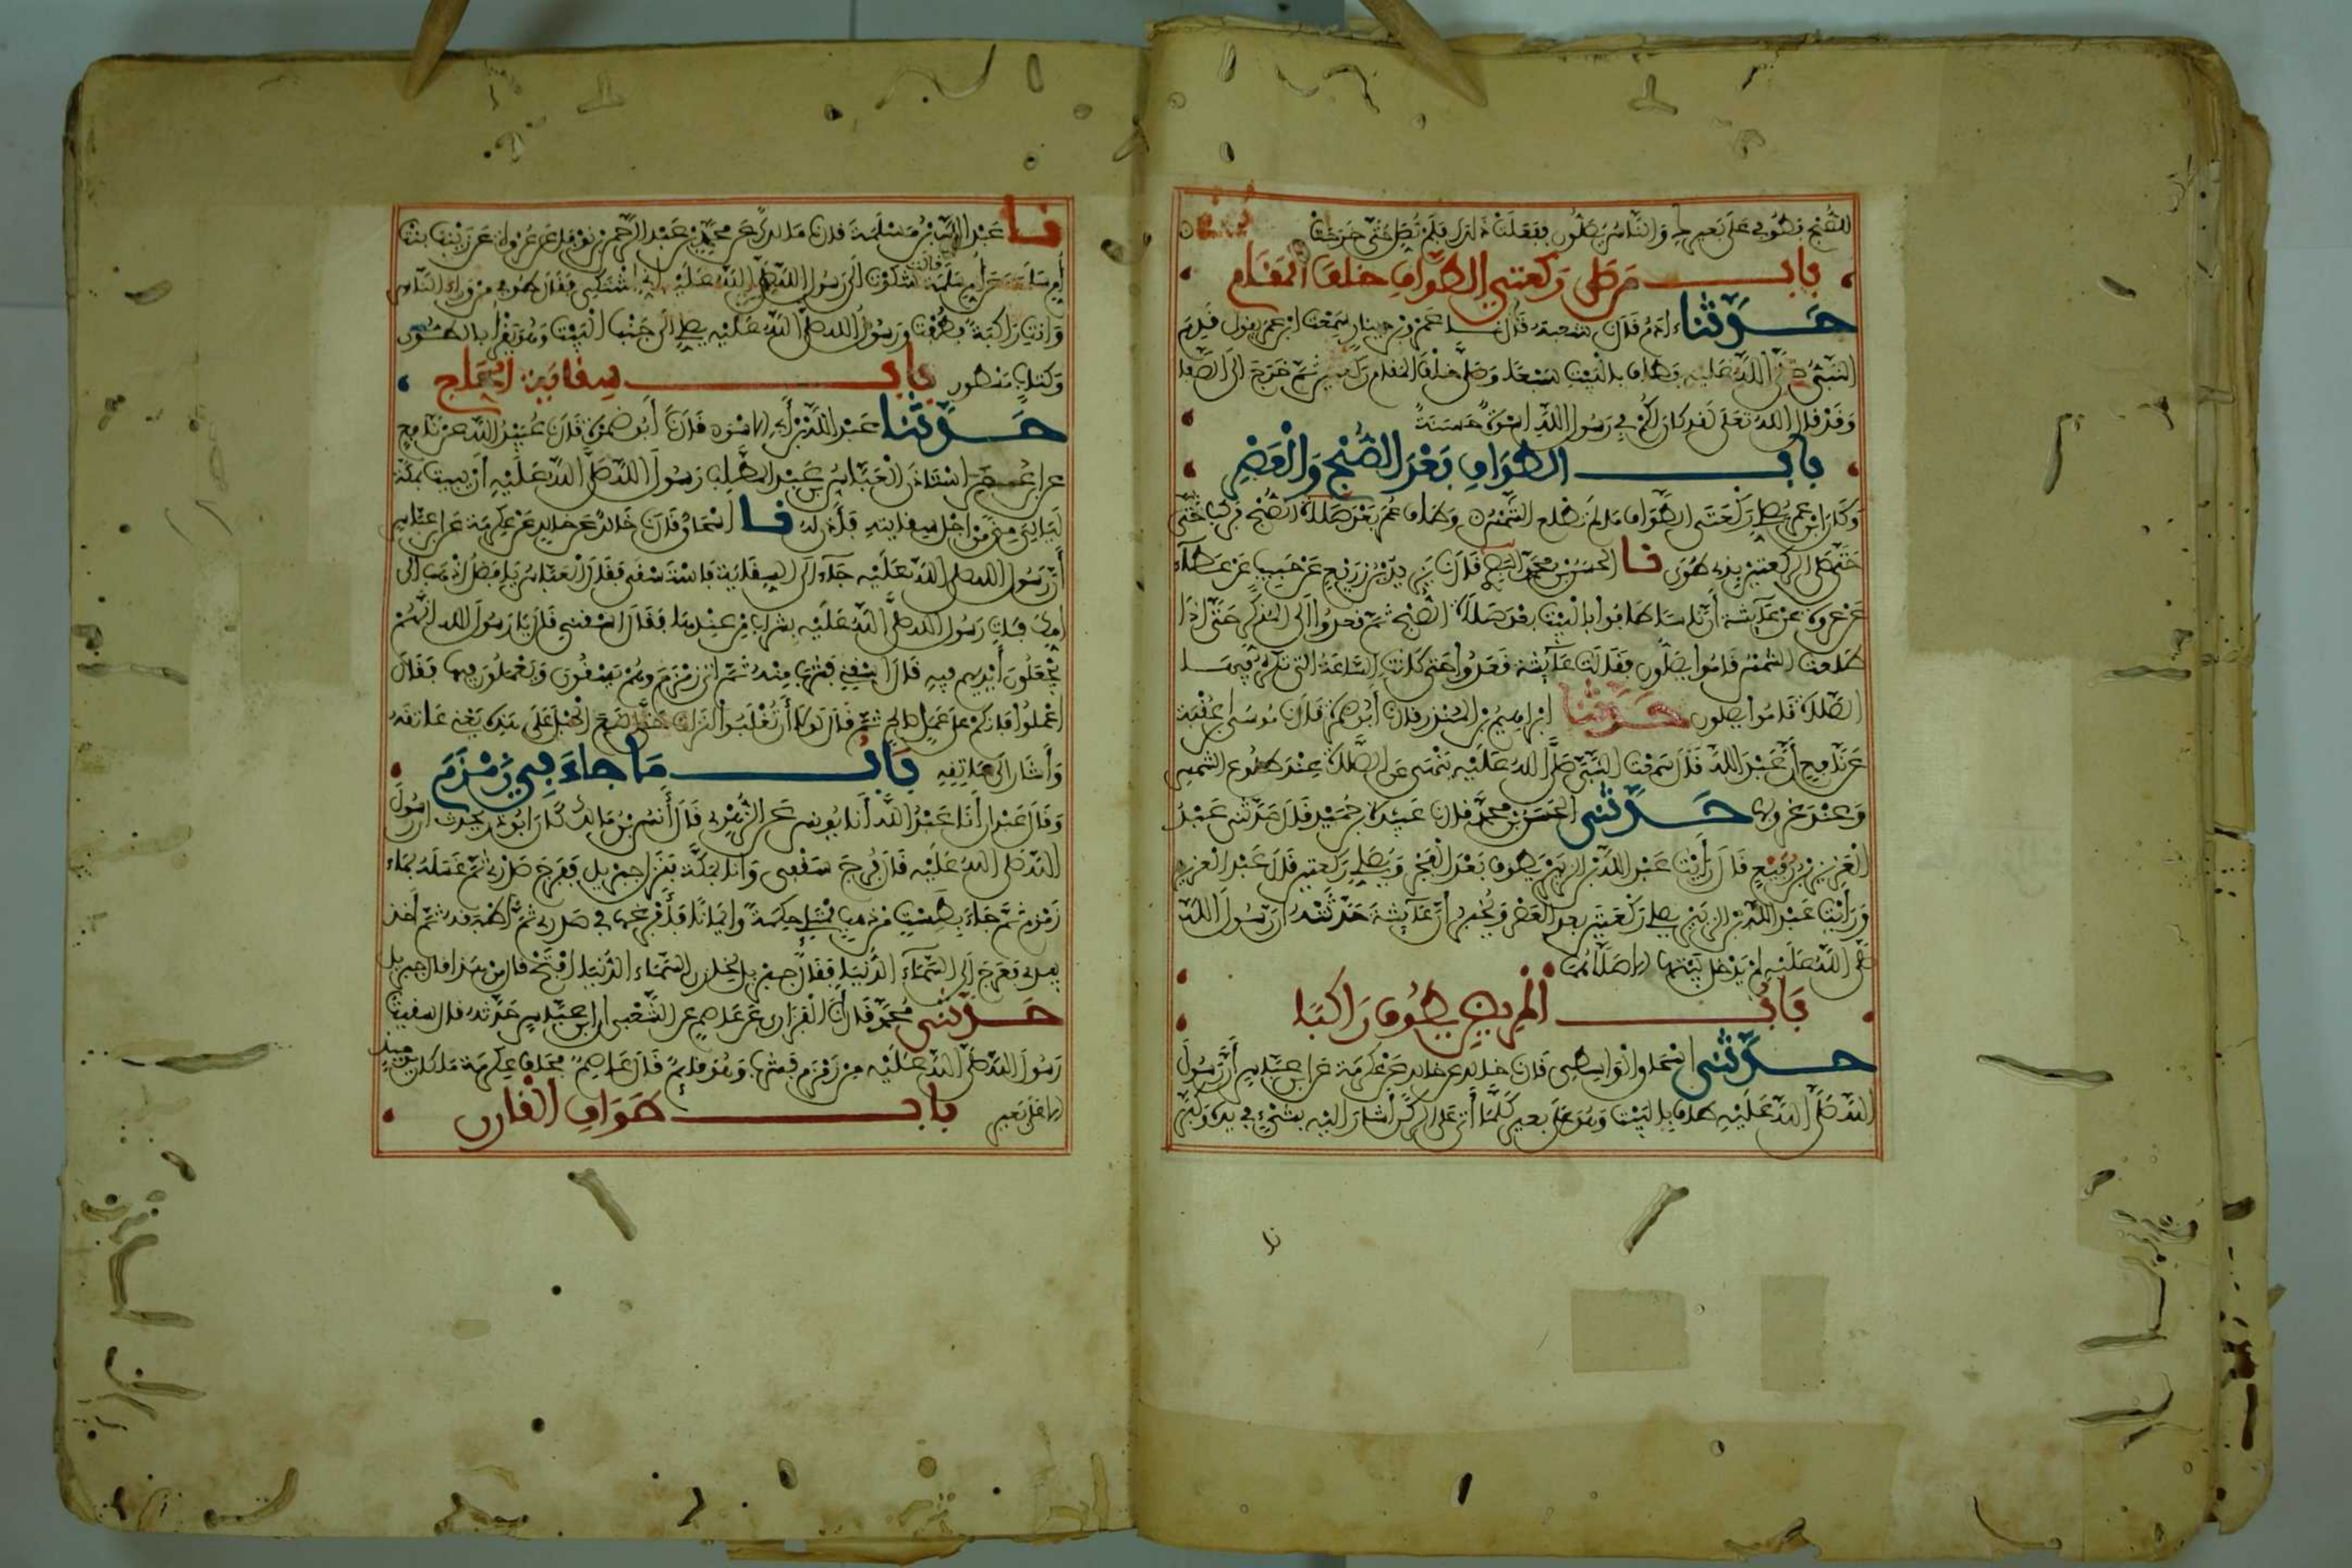 للصُّبْحِ فطُوفي عَلَى بَعيرِكِ وَالنَّاسُ يُصَلُّون ففعلَتْ ذلك فلَمْ تُصَلِّ حَتَّى خَرَجَتْ
باب مَن صَلَّى رَكعتي الطَّوافِ خلفَ المَقَامِ
حَدَّثَنَا ءادمُ قال نا شعبة قال نا عمرو بن دينار سَمِعْتُ ابن عمر يقول قَدِمَ
النَّبِيُّ صَلَّى اللَّهُ عَلَيْهِ فطاف بالبَيْتِ سَبْعًا وَصَلَّى خَلْفَ المقام ركعتين ثُمَّ خَرَجَ الى الصَّفا
وَقَدْ قال اللهُ تعلى لقد كان لكُمْ في رَسُولِ اللَّهِ اسْوَةٌ حَسَنَةٌ
باب الطَّوَافِ بَعْدَ الصُّبْحِ وَالْعَصْرِ
وَكَانَ ابن عمر يُصَلِّي رَكْعَتَي الطَّوافِ مَا لَمْ تَطْلُعِ الشَّمْسُ وَطَاف عُمَرُ بَعْدَ صَلاة الصُّبْحِ فركب حَتَّى
حَتَّى صَلَّى الركعتين بذي طُوًى نا الحسن بن محمد قال نا يزيد بنُ زُرَيْعٍ عَنْ حَبيبٍ عَنْ عَطَاء
عَن عروة عن عَائشة أنّ ناسًا طافُوا بالبَيْت بعْدَ صَلاة الصُّبْحِ ثم قعدُوا الى المُذَكِّر حَتَّى اذا
طلعت الشمسُ قامُوا يصَلُّون فقَالَت عَائِشَة قعدُوا حتى كانت السَّاعَةُ التي تكره فيها
الصَّلاة قامُوا يصلون حَدَّثَنَا ابراهيمُ بن المُنذر قال نا أبُو ضمرة قَال نا مُوسَى بن عُقْبَة
عَن نافعٍ أنّ عَبْدَ اللَّهِ قال سمعت النَّبِيَّ صَلَّى اللَّهُ عَلَيْهِ يَنْهَى عَن الصَّلاة عِنْدَ طلُوع الشمس
وَعِنْدَ غروبها حَدَّثَني الحَسَن بن محمّد قال نا عَبيدة بن حُمَيْد قَال حَدَّثَنِي عَبْدُ
الْعَزيزِ بْن رُفَيْعٍ قَال رَأَيْتُ عَبْدَ اللَّهِ بْن الزبَيْر يَطُوفُ بَعْدَ الْفَجْرِ وَيُصَلِّي رَكعتين قَالَ عَبْد العزيز
وَرَأَيْتُ عَبْدَ اللَّهِ بْن الزبَيْر يصلي رَكْعَتَيْن بعد العَصْر وَيُخْبِرُ أنّ عَائِشَةَ حَدَّثَتْهُ أنّ رَسُولَ اللَّه
صَلَّى اللَّهُ عَلَيْهِ لمْ يَدْخُل بَيْتَهَا الا صَلَّاهُمَا
بَاب المريضِ يطُوف رَاكبًا
حَدَّثَني اسْحَاقُ الْوَاسِطِي قَال نا خالد عن خالد عَنْ عِكرمَة عَن ابن عَبَّاس أنَّ رَسُولَ
اللَّهِ صَلَّى اللَّهُ عَلَيْهِ طاف بالبَيْت وَهُوَ عَلَى بعيرٍ كلَّمَا أتى على الرُّكْنِ أشار اليْه بشَيْءٍ في يده وَكبَّرَ
نا
نا عَبْدُ اللَّهِ بْنُ مَسْلَمَةَ قال نا مَالك عَن محمَّد بن عَبْد الرَّحمن بن نوفل عَن عُرْوة عَن زيْنَب بنْت
أم سَلمَةَ عَن أم سَلَمَة قالت شَكوْتُ الى رَسُول اللهِ صلى اللهُ عَلَيْه انى اشْتكي فقَال طُوفي من وراء النَّاس
وَأنت رَاكبَةٌ فطُفْت ورَسُولُ الله صلى اللهُ عَلَيْه يصلي الى جَنْب البَيْت وَهُوَ يَقْرأ بالطُّور
وَكتَابٍ مَسْطُور بَاب سِقَايَةِ الحَاجِّ
حَدَّثَنَا عَبْد اللَّه بْن أبي الاسْوَد قَال نا أبُو ضمرة قَال نا عُبَيْدُ اللَّه عن نافِع
عن ابن عُمَر اسْتَأذنَ الْعَبَّاسُ بن عَبْدِ المُطَّلِبِ رَسُولَ اللَّه صَلَّى اللَّهُ عَلَيْهِ أنْ يبيت بمَكَّة
ليَاليَ مِنًى مِنْ أجْلِ سِقايتِهِ فأذِنَ لهُ نا اسْحَاقُ قَال نا خَالدٌ عَن خَالدٍ عَن عِكرمَة عَن ابن عبّاس
أنّ رَسُول الله صلى اللهُ عَلَيْه جَاءَ الى السِّقَايَة فاسْتَسْقَى فقال الْعَبَّاسُ يا فضلُ اذهب الى
امِّكَ فَأْتِ رَسُول الله صَلَّى اللهُ عَلَيْه بشرابٍ مِن عِنْدِهَا فقَال اسْقني قالَ يا رَسُولَ الله انَّهُمْ
يَجْعَلُونَ أيْدِيَهم فِيهِ قَالَ اسْقِنِي فَشرب مِنْهُ ثُمَّ أتى زمْزم وهُمْ يَسْقُون وَيَعْمَلُون فِيهَا فَقَال
اعْملُوا فانكم على عَمَلٍ صالحٍ ثمَّ قَالَ لَوْلا أن تُغْلَبُوا لنزلت حَتَّى أضَع الْحَبْلَ عَلَى هذِه يَعْني عَاتقَه
وَأشَار الى عَاتِقِهِ بَاب مَا جَاءَ فِي زَمْزَمَ
وَقَال عَبْدان أنَا عَبْدُ اللَّه أنا يونس عَن الزُّهْري قَال أنسُ بنُ مَالك كان أبُو ذَرّ يحدث ان رسُولَ
اللَّه صَلَّى اللهُ عَلَيْه قَال فُرِجَ سَقْفي وَأنا بمَكَّة فنزل جبْريل ففرَج صَدْري ثمَّ غَسَلَهُ بمَاء
زَمْزم ثمَّ جَاءَ بطَسْتٍ مِن ذهبٍ مُمْتَلِئٍ حِكمَةً وايمَانًا فأفرغهَا في صَدري ثمَّ أطبقه ثمَّ أخَذ
بيدي فعَرَجَ الى السَّمَاءِ الدُّنيَا فقالَ جبْريل لخازن السَّمَاء الدُّنيَا افتَحْ قال من هَذا قال جبريل
حَدَّثَني مُحَمَّد قال أنا الفَزَاري عَن عَاصمٍ عَن الشَّعْبي ان ابن عبّاس حَدَّثَهُ قال سقيت
رَسُولَ اللَّه صَلَّى اللَّهُ عَلَيْه مِن زَمْزم فشربَ وَهُوَ قائِمٌ قَال عَاصمٌ فحَلَفَ عِكرمَة مَا كان يومئذٍ
الا عَلَى بَعير باب طَوَافِ القَارن